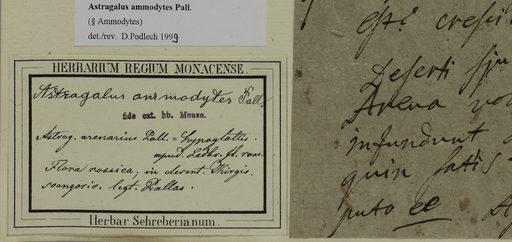 Astragalus ammodytes Pall.
(§ Ammodytes)
det./rev. D.Podlech 1999
HERBARIUM REGIUM MONACENSE.
Astragalus ammodytes Pall.
fide ext. hb. Monac.
Astrag. arenarius Pall. = Hypoglottis
apud Ledbr. fl. ross.
Flora rossica; in desert. Kirgis.
soongoric. legt. Pallas.
Herbar. Schreberianum.
Deserti
Arena
infundunt
quin satis
puto ee